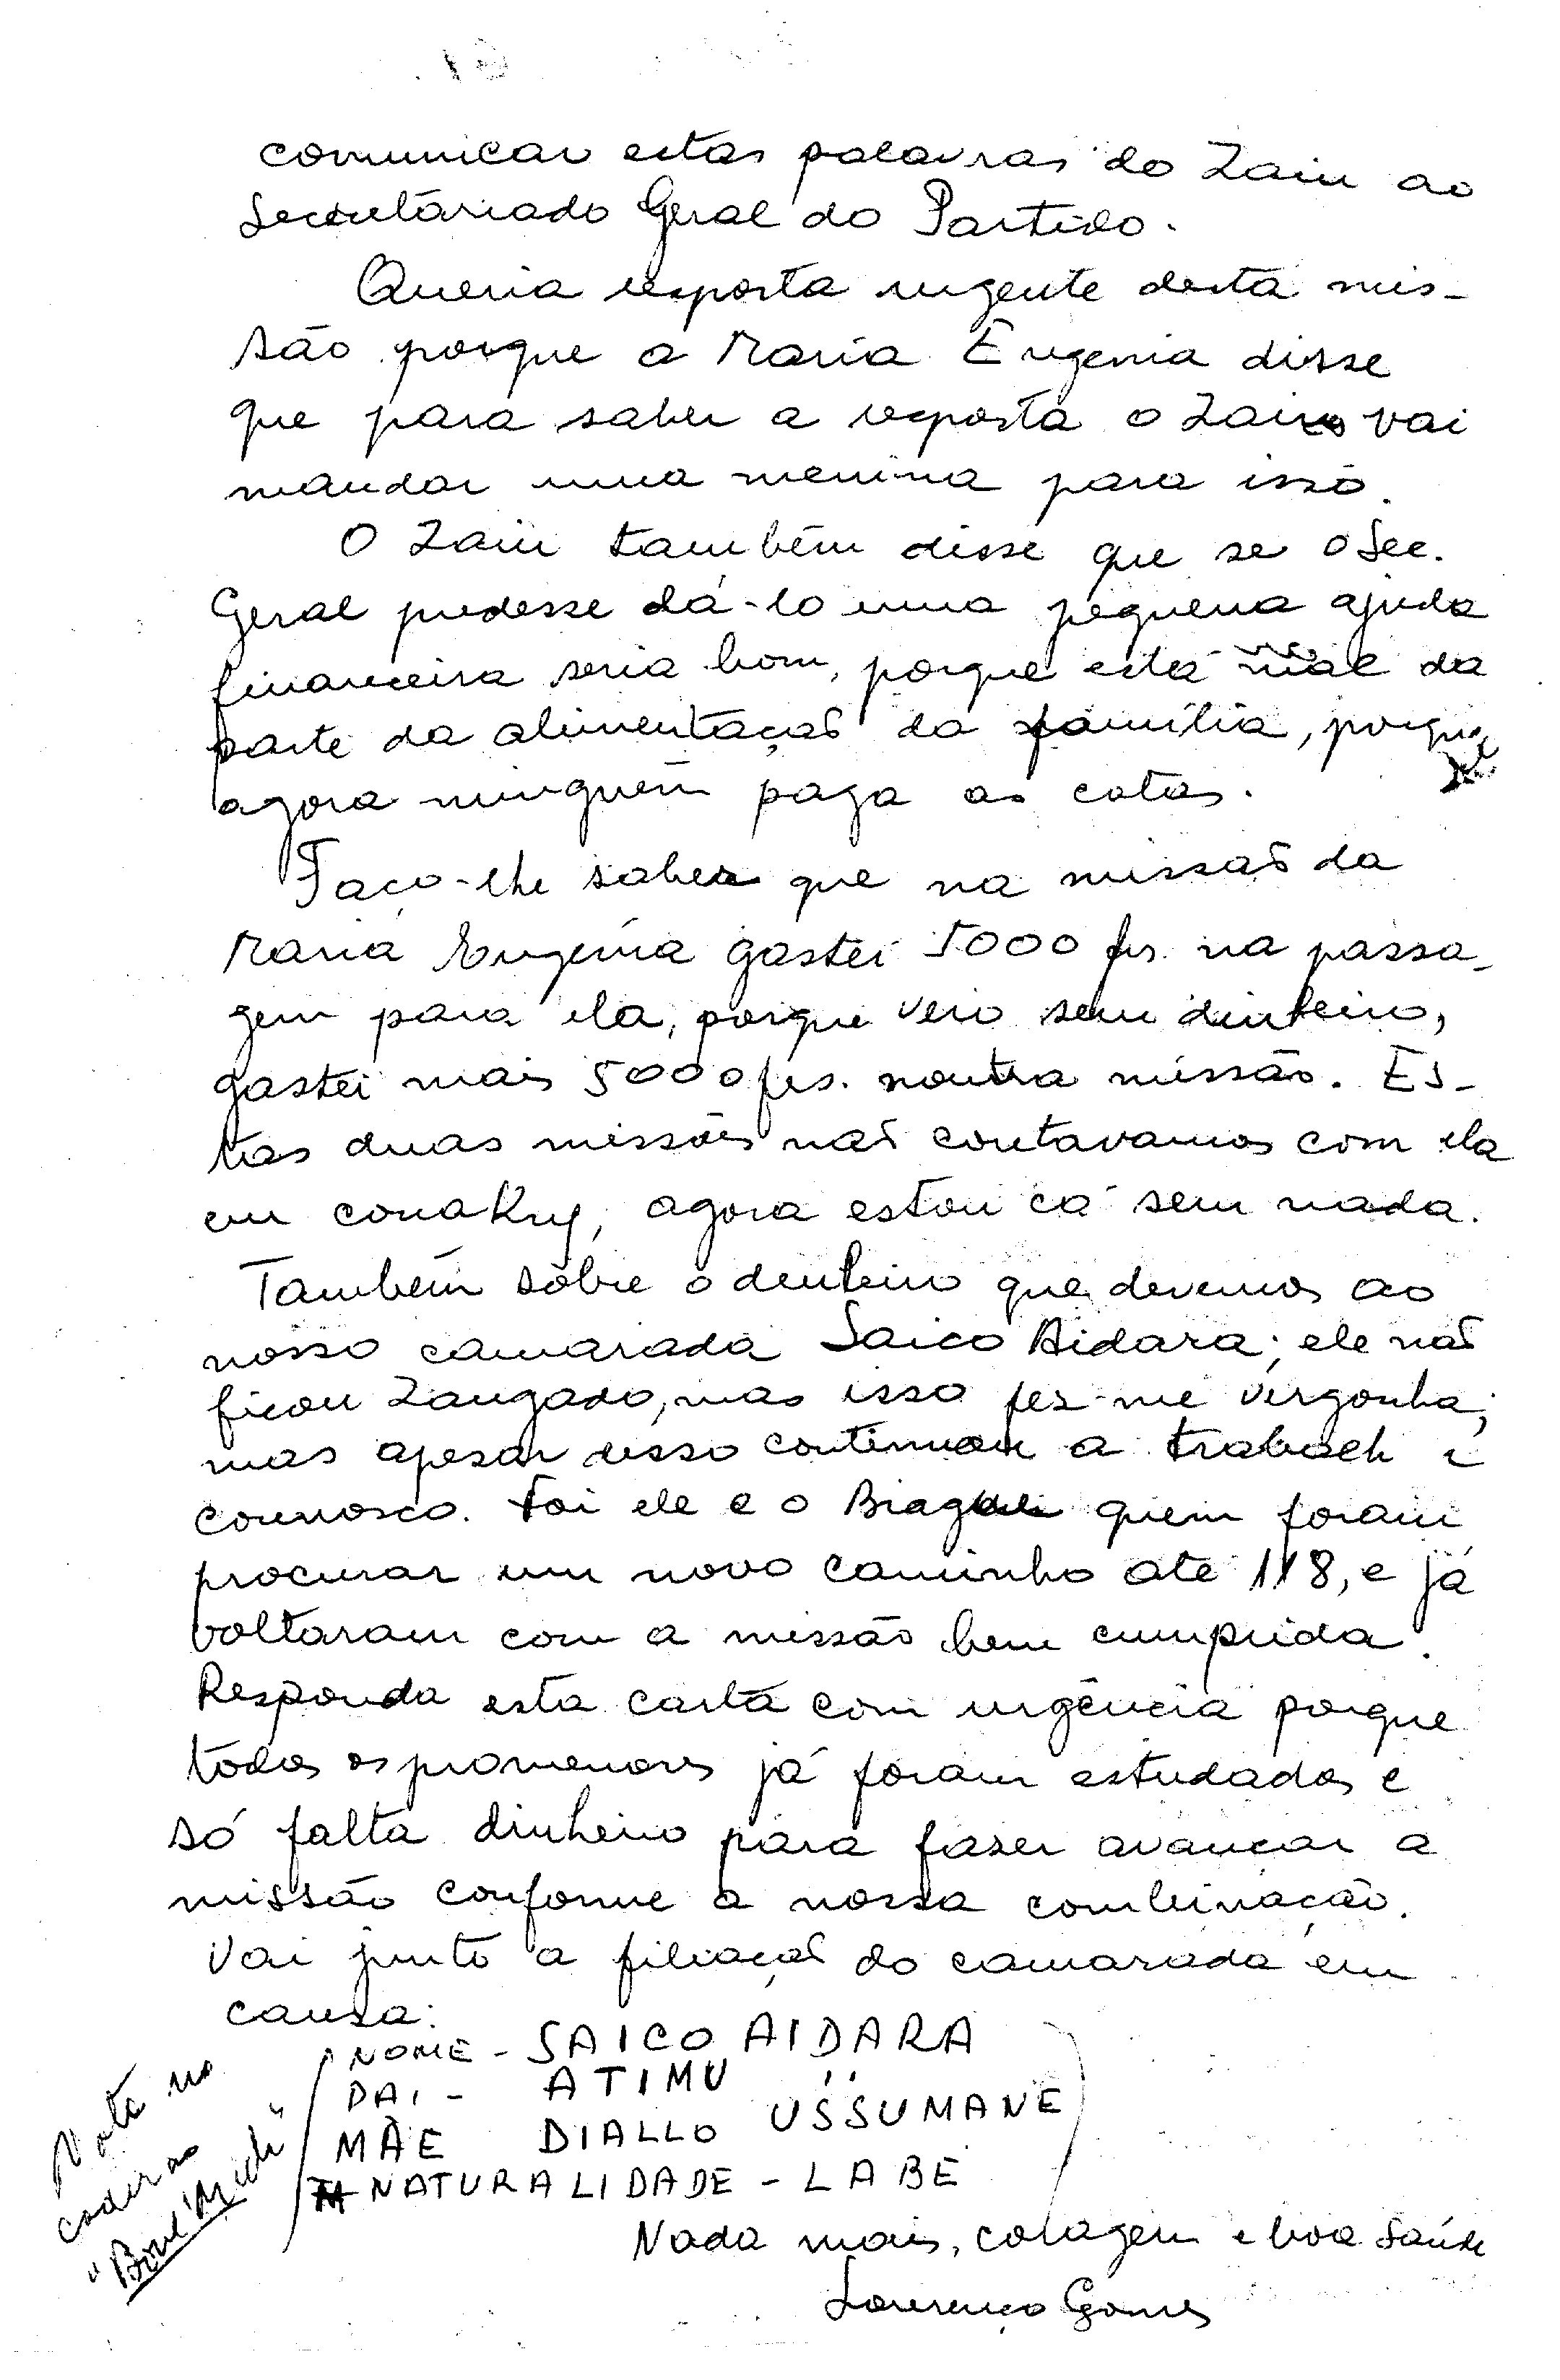 comunicar estas palavras do Zain ao
Secretáriado Geral do Partido.
Queria resposta urgente desta mis-
são porque a Maria Eugenia disse
que para saber a resposta o Zain vai
mandar uma menina para isso.
O Zain também disse que se o Sec.
Geral pudesse dá-lo uma pequena ajuda
financeira seria bom, porque está mal da
parte da alimentação da família, porque
agora ninguém paga as cotas.
Faço-lhe saber que na missão da
Maria Eugénia gastei 5000 frs. na passa-
gem para ela, porque veio sem dinheiro,
gastei mais 5000 frs. noutra missão. Es-
tas duas missões não contavamos com ela
em conakry, agora estou cá sem nada.
Também sôbre o denheiro que devemos ao
nosso camarada Saico Aidara; ele não
ficou zangado, mas isso fez-me vergonha;
mas apesar disso continuou a trabalh
connosco. Foi ele e o Biagué quem foram
procurar um novo caminho até 118, e já
voltaram com a missão bem cumprida.
Responda esta carta com urgência porque
todos os promenores já foram estudados e
só falta dinheiro para fazer avançar a
missão conforme a nossa combinação.
Vai junto a filiação do camarada em
causa:
NOME - SAICO AIDARA
PAI - ATIMU "
MÃE DIALLO USSUMANE
NATURALIDADE - LABE
Nada mais, coragem e boa saúde
Lourenço Gomes
Nota no
caderno